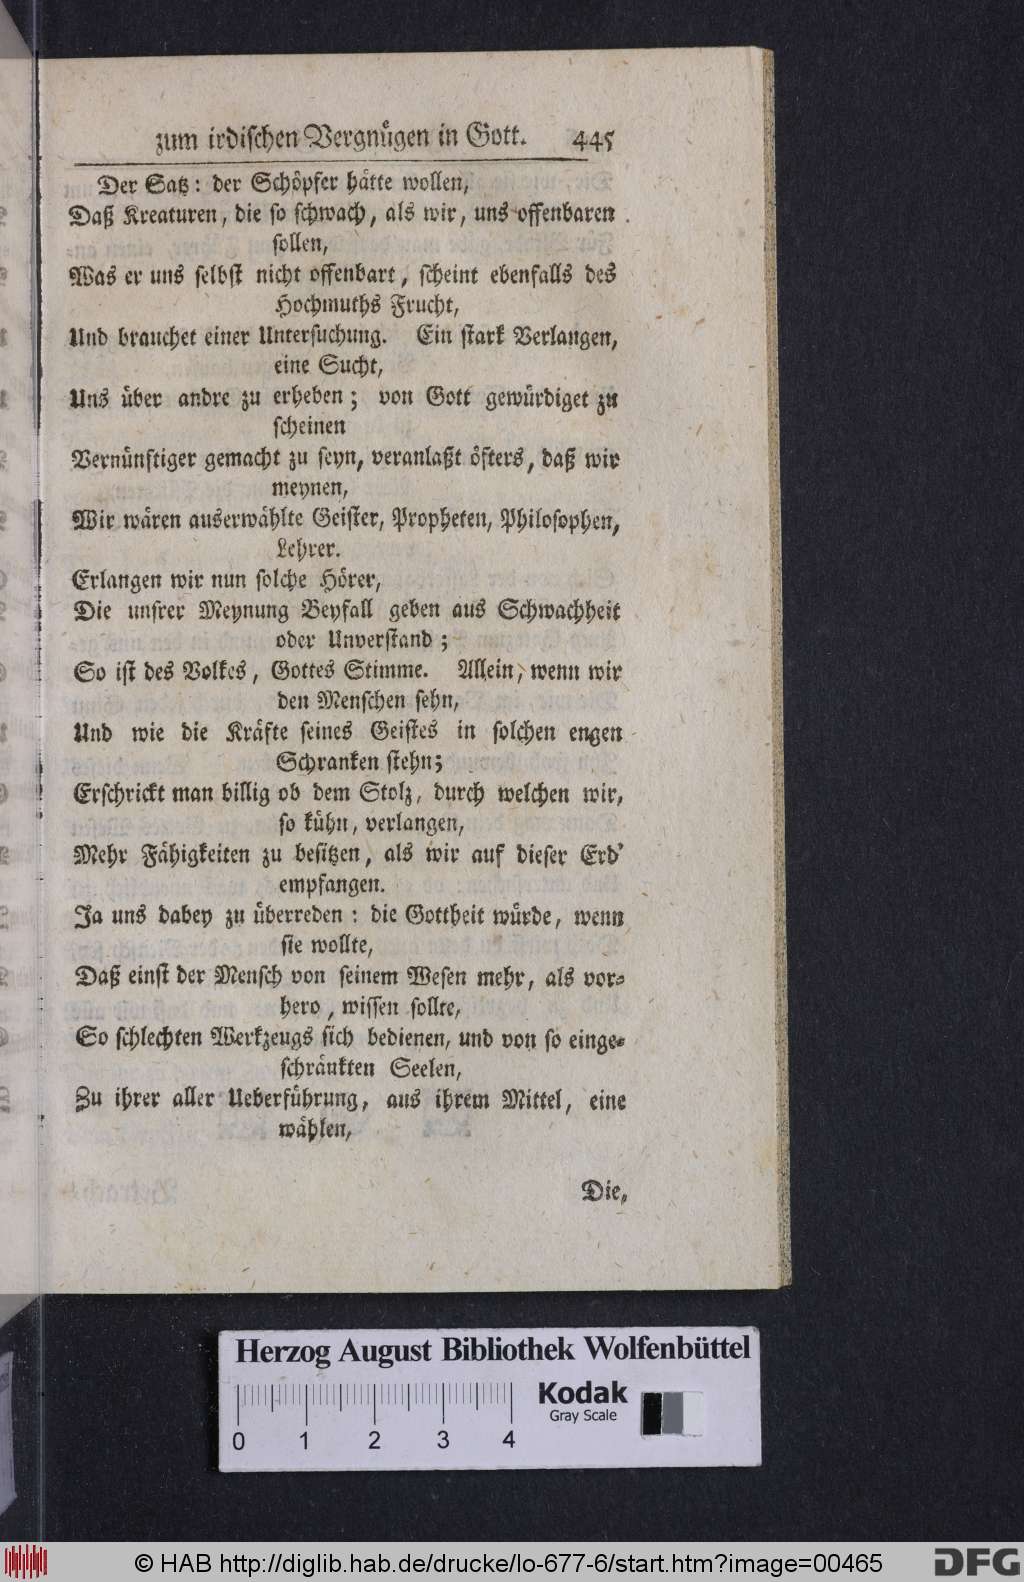 zum irdischen Vergnügen in Gott. 445
Der Satz: der Schöpfer hätte wollen,
Daß Kreaturen, die so schwach, als wir, uns offenbaren
sollen,
Was er uns selbst nicht offenbart, scheint ebenfalls des
Hochmuths Frucht,
Und brauchet einer Untersuchung. Ein stark Verlangen,
eine Sucht,
Uns über andre zu erheben; von Gott gewürdiget zu
scheinen
Vernünftiger gemacht zu seyn, veranlaßt öfters, daß wir
meynen,
Wir wären auserwählte Geister, Propheten, Philosophen,
Lehrer.
Erlangen wir nun solche Hörer,
Die unsrer Meynung Beyfall geben aus Schwachheit
oder Unverstand;
So ist des Volkes, Gottes Stimme. Allein, wenn wir
den Menschen sehn,
Und wie die Kräfte seines Geistes in solchen engen
Schranken stehn;
Erschrickt man billig ob dem Stolz, durch welchen wir,
so kühn, verlangen,
Mehr Fähigkeiten zu besitzen, als wir auf dieser Erd'
empfangen.
Ja uns dabey zu überreden: die Gottheit würde, wenn
sie wollte,
Daß einst der Mensch von seinem Wesen mehr, als vor-
hero, wissen sollte,
So schlechten Werkzeugs sich bedienen, und von so einge-
schränkten Seelen,
Zu ihrer aller Ueberführung, aus ihrem Mittel, eine
wählen,
Die,
Herzog August Bibliothek Wolfenbüttel
Kodak
Gray Scale
0 1 2 3 4
© HAB http://diglib.hab.de/drucke/lo-677-6/start.htm?image=00465
DFG